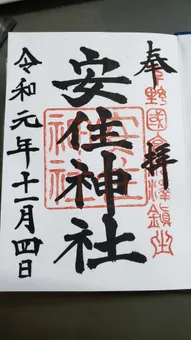 奉拝
野國
澤鎮座
安住神社
安住
神社
令和元年十一月四日